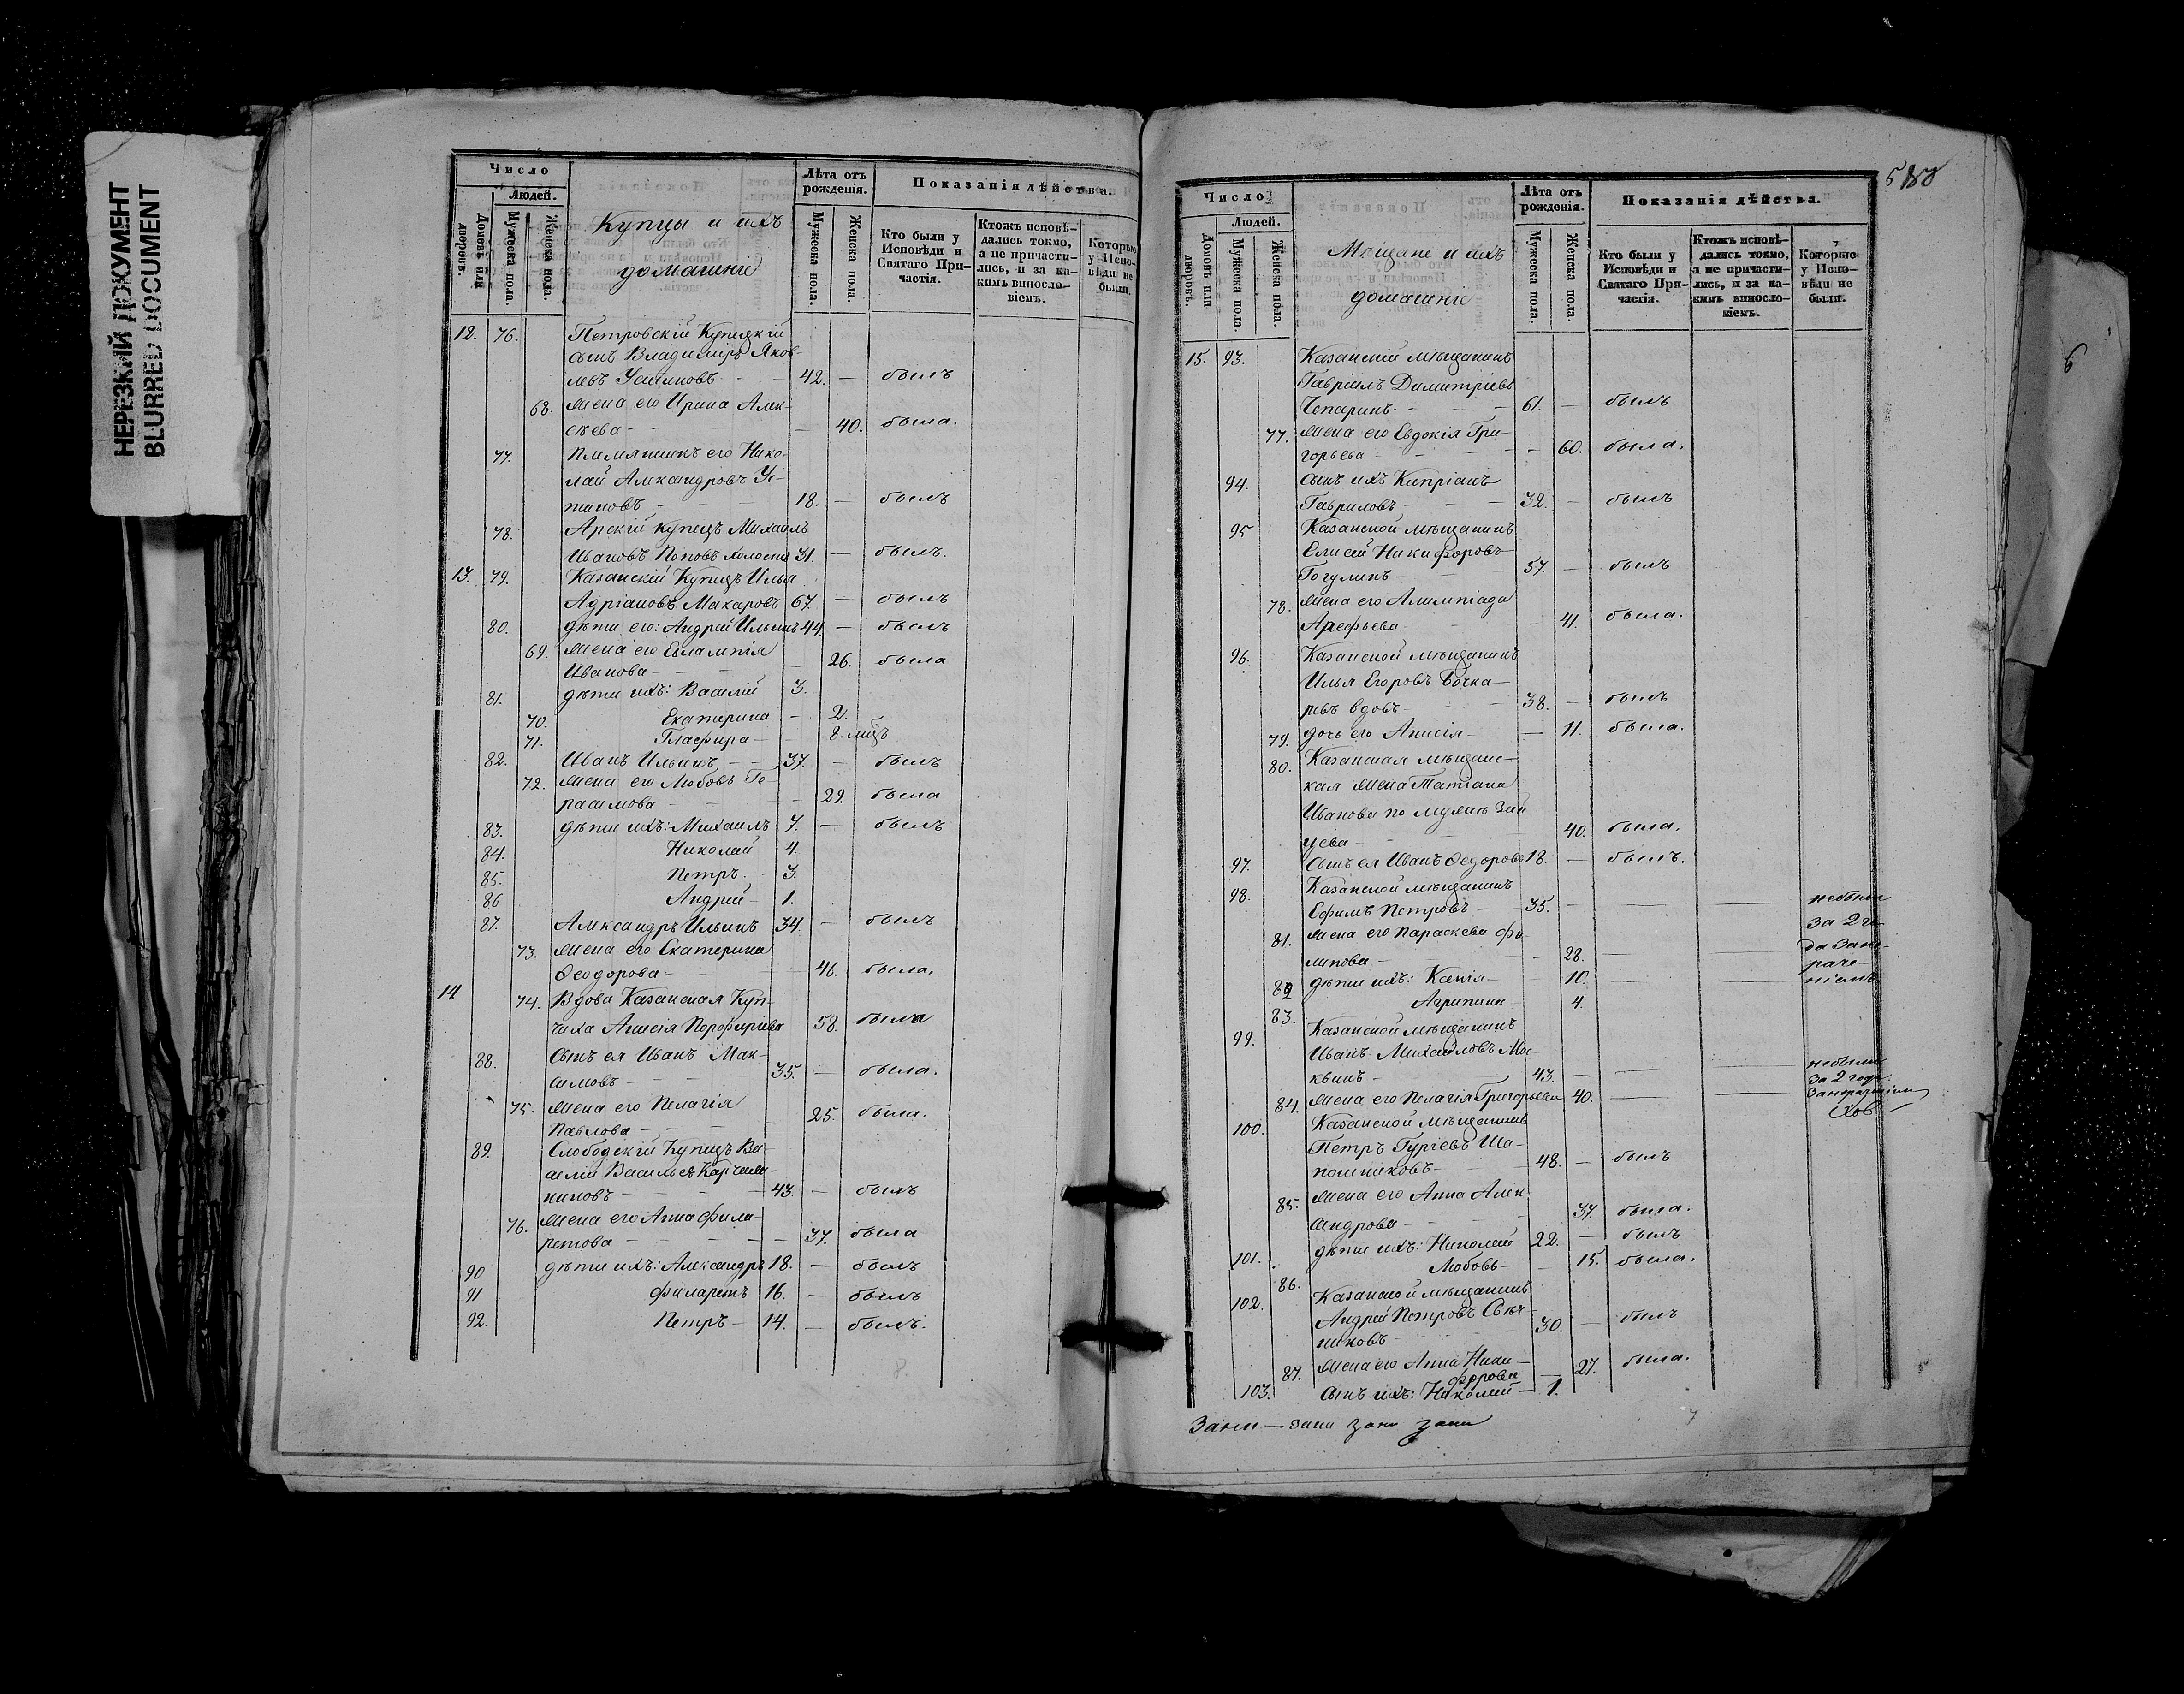 НЕРЕЗКИЙ ДОКУМЕНТ
BLURRED DOCUMENT
Число
Людей.
Домовъ или дворовъ.
Мужеска пола.
Женска пола.
Купцы и ихъ
домашніе
Лѣта отъ рожденія.
Мужеска пола.
Женска пола.
Показанія дѣйства.
Кто были у Исповѣди и Святаго Причастія.
Ктожъ исповѣдались токмо, а не причастились, и за какимъ винословіемъ.
Которые у Исповѣди не были.
12. 76. Петровскій Купецкій
сынъ Владиміръ Яков-
левъ Устиновъ - - 42. - былъ
68. Жена его Ирина Алек-
сѣева - - 40. была.
77. Племянникъ его Нико-
лай Александровъ Ус-
тиновъ - - 18. - былъ
78. Арскій купецъ Михаилъ
Ивановъ Поповъ холостъ 31. - былъ.
13. 79. Казанскій Купецъ Илья
Адріановъ Макаровъ 67. - былъ
80. дѣти его: Андрей Ильинъ 44. - былъ
69. Жена его Евлампія
Иванова - - 26. была
81. дѣти ихъ: Василій 3.
70. Екатерина - 2.
71. Глафира - 8. мѣц
82. Иванъ Ильинъ - - 37. - былъ
72. Жена его Любовь Ге-
расимова - - 29. была
83. дѣти ихъ: Михаилъ 7. - былъ
84. Николай 4.
85. Петръ. - 3.
86 Андрей - 1.
87. Александръ Ильинъ 34. - былъ
73. Жена его Екатерина
Ѳеодорова - - 46. была.
14 74. Вдова Казанская Куп-
чиха Анисія Порофиріева 58. была
88. Сынъ ея Иванъ Мак-
симовъ - - 35. - была.
75. Жена его Пелагія
Павлова - - 25. была.
89. Слободскій Купецъ Ва-
силій Васильевъ
никовъ - - 43. - былъ
76. Жена его Анна Фила-
ретова - - 37. была
90 дѣти ихъ: Александръ 18. - былъ
91 Филаретъ 16. - былъ
92. Петръ - 14. - былъ.
8.
Число
Людей.
Домовъ или дворовъ.
Мужеска пола.
Женска пола.
Мѣщане и ихъ
домашніе
Лѣта отъ рожденія.
Мужеска пола.
Женска пола.
Показанія дѣйства.
Кто были у Исповѣди и Святаго Причастія.
Ктожъ исповѣдались токмо, а не причастились, и за какимъ винословіемъ.
Которые у Исповѣди не были.
6
15. 93. Казанскій мѣщанинъ
Гавріилъ Димитріевъ
Чепаринъ. - - 61. - былъ
77. Жена его Евдокія Гри-
горьева - - 60. была.
94. сынъ ихъ Кипріанъ
Гавриловъ - - 32. - былъ
95 Казанской мѣщанинъ
Елисей Никифоровъ
Гогулинъ - - 57. - былъ
78. Жена его Алимпіада
Арефьева - - 41. была.
96. Казанской мѣщанинъ
Илья Егоровъ Бочка-
ревъ вдовъ - - 38. - былъ
79. дочь его Анисія - - 11. была.
80. Казанская мѣщанс-
кая жена Татіана
Иванова по мужѣ Зай
цева - - 40. была.
97. Сынъ ея Иванъ Ѳедоровъ 18. - былъ.
98. Казанской мѣщанинъ
Ефимъ Петровъ - 35. - небыли
за 2 го-
81. Жена его Параскева Фи-
липова - - 28. да
82 дѣти ихъ: Ксенія - 10.
Агрипина 4.
83.
99. Казанской мѣщанинъ
Иванъ Михайловъ Мос
квинъ - 43. - небыли
за 2 года
84. Жена его Пелагія Григорьева 40.
100. Казанской мѣщанинъ
Петръ Гуріевъ Ша-
пошниковъ - - 48. - былъ
85. Жена его Анна Алек
сандрова - - 37. была.
101. дѣти ихъ: Николай 22. - былъ
86. Любовь - - 15. была.
102. Казанской мѣщанинъ
Андрей Петровъ Свѣч-
никовъ - 30. - былъ
87. Жена его Анна Ники-
форова - 27. была.
103. сынъ ихъ: Николай - 1.
7